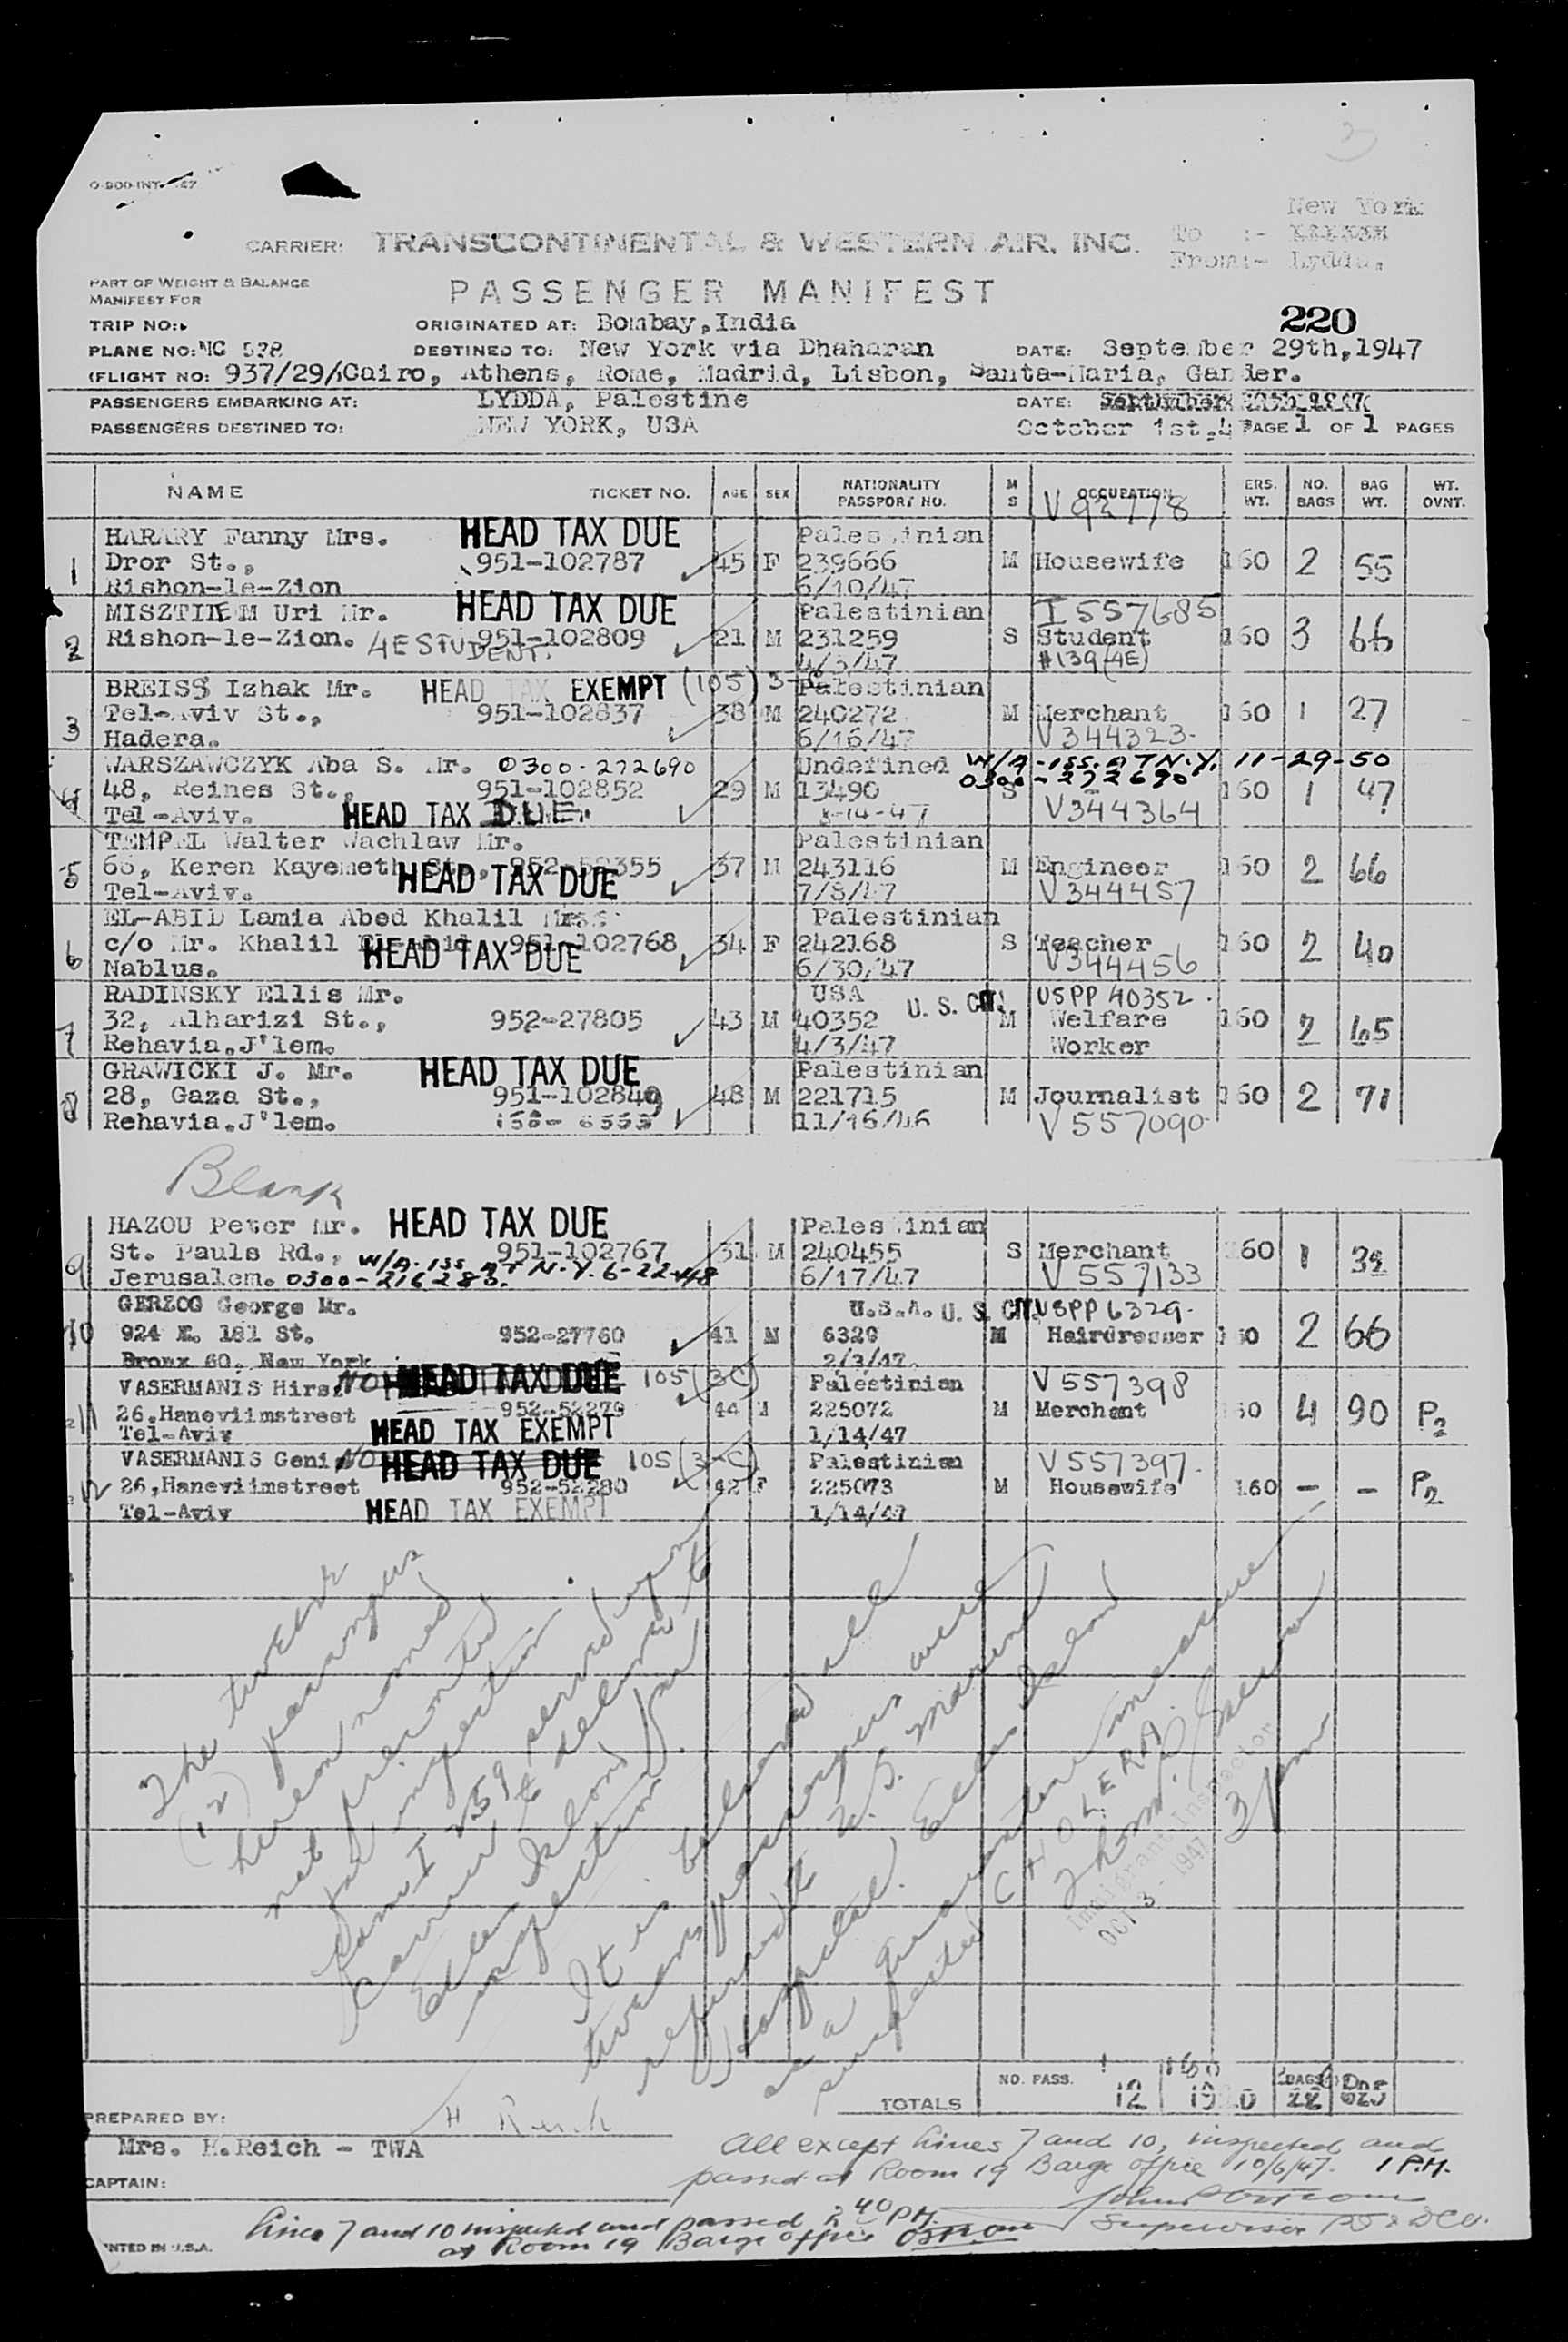 3
O-900-INT
New York
CARRIER: TRANSCONTINENTAL & WESTERN AIR, INC. To :-
From:- Lydda.
PART OF WEIGHT & BALANCE
MANIFEST FOR
PASSENGER MANIFEST
TRIP NO: ORIGINATED AT: Bombay, India 220
PLANE NO: NC DESTINED TO: New York via Dhaharan DATE: September 29th, 1947
FLIGHT NO: 937/29/Cairo, Athens, Rome, Madrid, Lisbon, Santa-Maria, Gander.
PASSENGERS EMBARKING AT: LYDDA, Palestine DATE:
PASSENGERS DESTINED TO: NEW YORK, USA October 1st, 47 PAGE 1 OF 1 PAGES
NAME TICKET NO. AGE SEX NATIONALITY PASSPORT NO. M S OCCUPATION ERS. WT. NO. BAGS BAG WT. WT. OVNT.
V 92778
HARARY Fanny Mrs. HEAD TAX DUE Palestinian
1 Dror St., 951-102787 45 F 239666 M Housewife 160 2 55
Rishon-le-Zion 6/10/47
MISZTINEM Uri Mr. HEAD TAX DUE Palestinian I 557685
2 Rishon-le-Zion. 4E STUDENT. 951-102809 21 M 231259 S Student 160 3 66
4/3/47 #139 (4E)
BREISS Izhak Mr. HEAD TAX EXEMPT (105) 3-C Palestinian
3 Tel-Aviv St., 951-102837 38 M 240272 M Merchant 160 1 27
Hadera. 6/16/47 V344323
WARSZAWCZYK Aba S. Mr. 0300-272690 Undefined W/A-iss. AT N.Y. 11-29-50
0300-272690
4 48, Reines St., 951-102852 29 M 13490 S 160 1 47
Tel-Aviv. HEAD TAX DUE 8-14-47 V344364
TEMPEL Walter Wachlaw Mr. Palestinian
5 66, Keren Kayemeth St., 952-52355 37 M 243116 M Engineer 160 2 66
Tel-Aviv. HEAD TAX DUE 7/8/47 V344457
EL-ABID Lamia Abed Khalil Miss Palestinian
6 c/o Mr. Khalil El-Abid 951-102768 34 F 242168 S Teacher 160 2 40
Nablus. HEAD TAX DUE 6/30/47 V344456
RADINSKY Ellis Mr. USA U. S. CIT. USPP 40352
7 32, Alharizi St., 952-27805 43 M 40352 M Welfare 160 2 65
Rehavia.J'lem. 4/3/47 Worker
GRAWICKI J. Mr. HEAD TAX DUE Palestinian
8 28, Gaza St., 951-102849 48 M 221715 M Journalist 160 2 71
Rehavia.J'lem. 11/16/46 V557090
Blank
HAZOU Peter Mr. HEAD TAX DUE Palestinian
9 St. Pauls Rd., 951-102767 31 M 240455 S Merchant 160 1 32
Jerusalem. W/A. iss. AT N.Y. 6-22-48 0300-216283. 6/17/47 V 557133
GERZOG George Mr. U.S.A. U. S. CIT. USPP 6329
10 924 E. 181 St. 952-27760 41 M 6329 M Hairdresser 160 2 66
Bronx 60, New York 2/3/47
VASERMANIS Hirs. NO HEAD TAX DUE 105 (3C) Palestinian V 557398
11 26, Haneviimstreet 952-52279 44 M 225072 M Merchant 160 4 90 P2
Tel-Aviv HEAD TAX EXEMPT 1/14/47
VASERMANIS Geni NO HEAD TAX DUE 105 (3-C) Palestinian V 557397
12 26, Haneviimstreet 952-52280 42 F 225073 M Housewife 160 - - P2
Tel-Aviv HEAD TAX EXEMPT 1/14/47
The twelve
(12) passengers
herein named
not presented
for inspection
Form I 259 served upon
carrier to deliver to
Ellis Island for
inspection.
It is believed all
twelve passengers were
referred to U.S. Marine
Hospital, Ellis Island
as a quarantine measure
suspected CHOLERA.
Immigrant Inspector
OCT 3 - 1947
3 pm
TOTALS NO. PASS. 12 BAGS
PREPARED BY: H Reich
Mrs. H.Reich - TWA
All except lines 7 and 10, inspected and
passed at Room 19 Barge office 10/6/47. 1 P.M.
CAPTAIN:
Supervisor
Lines 7 and 10 inspected and passed 2 40 PM.
at Room 19 Barge office
NTED IN U.S.A.